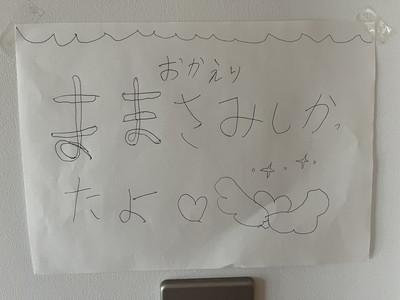 おかえり
ままさみしかっ
たよ♡